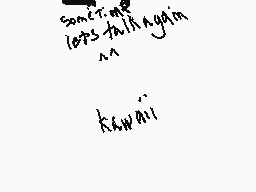 sometime
lets talk again
^^
kawaii